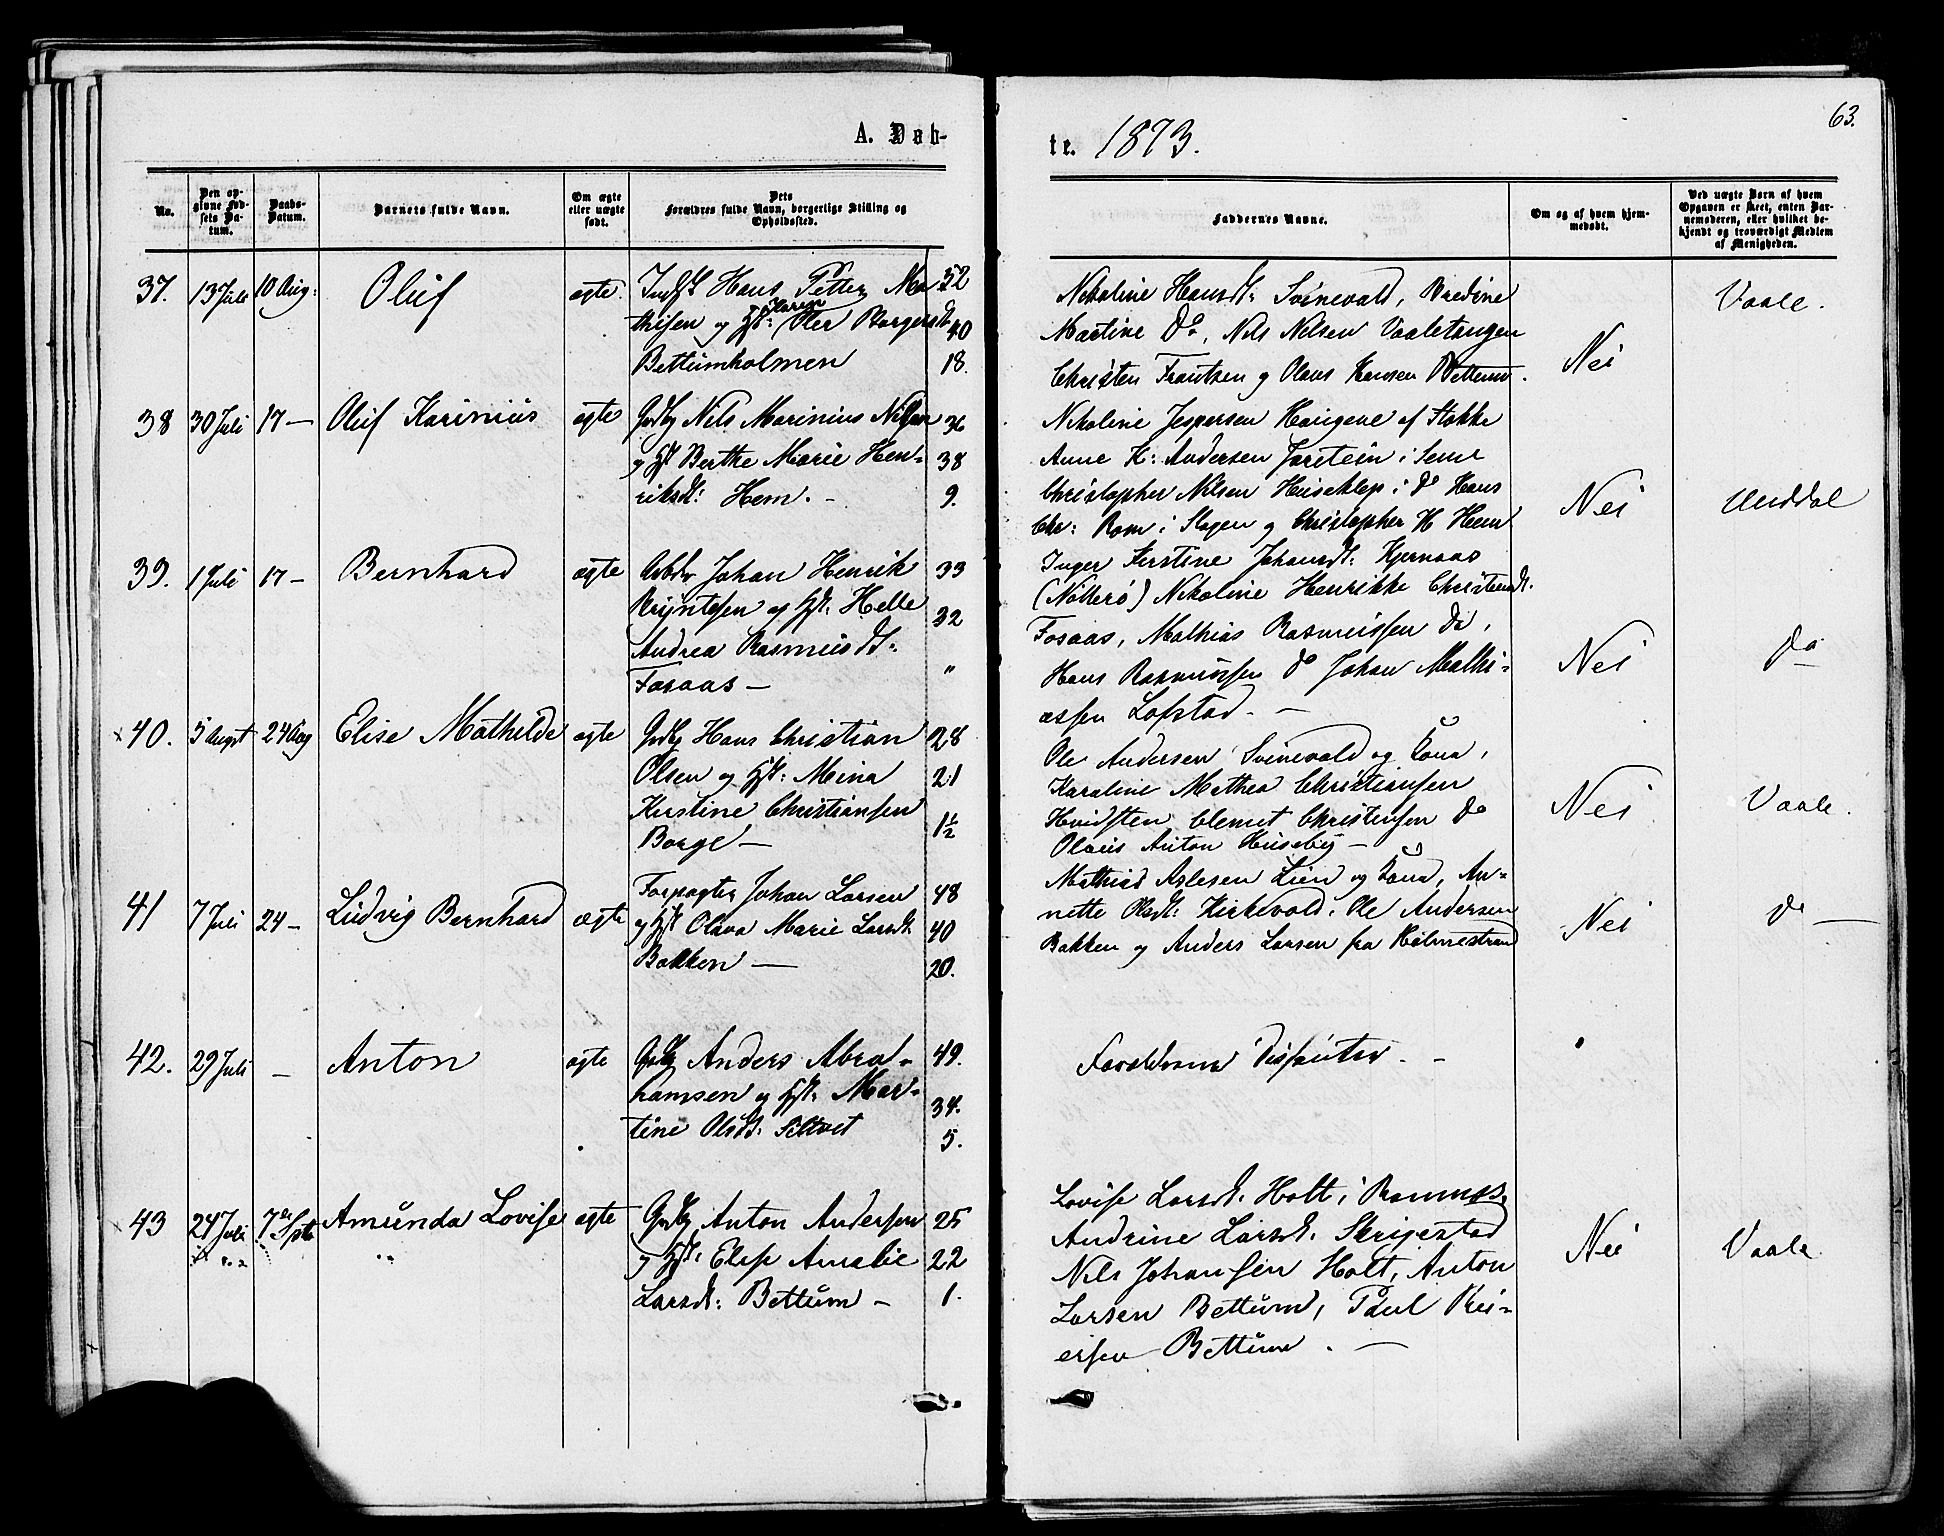 A. Døb-
te. 1873.
63.
No.
Den op-
givne Fød-
sels Da-
tum.
Daabs-
Datum.
Barnets fulde Navn.
Om ægte
eller uægte
født.
Dets
Forældres fulde Navn, borgerlige Stilling og
Opholdssted.
Faddernes Navne.
Om og af hvem hjem-
medøbt.
Ved uægte Barn af hvem
Opgaven er skeet, enten Bar-
nemoderen, eller hvilket be-
kjendt og troværdigt Medlem
af Menigheden.
37. 13 Juli 10 Aug: Oluf ægte. Hans Petter Ma- 52
thisen og Karen Borgersd. 40
Bettumholmen 18.
Nikoline Hansdt: Svinevold, Bredine
Martine do, Nils Nilsen Vaaletangen
Christen Frantzen og Olaus Hansen Bettum.
Nei
Vaale.
38 30 Juli 17 — Oluf Karinius ægte Nils Marinius Nilsen 36
og Berthe Marie Hen- 38
riksdt: Hem. - 9.
Nikoline Jespersen Haugene af Stokke
Anne K: Andersen Jaretein i Sem
Christopher Nilsen Huseklep i do Hans
Chr: Rom i Slagen og Christopher H Hem
Nei
Unddal
39. 1 Juli 17 — Bernhard ægte Arbdr Johan Henrik 33
Bryntesen og Helle 32
Andrea Rasmusdt.
Fosaas — "
Inger Kerstine Johansdt: Kjernaas
(Nøtterø) Nikoline Henrikke Christensdt.
Fosaas, Mathias Rasmussen do,
Hans Rasmussen do Johan Mathi-
assen Lofstad. —
Nei
do
x 40. 5 August 24 Aug Elise Mathilde ægte Hans Christian 28
Olsen og Mina 21
Kirstine Christiansen 1½
Borge —
Ole Andersen Svinevold og Kona,
Karoline Mathea Christiansen
Hvidsten Clemet Christensen do
Olaus Anton Huseby —
Nei
Vaale.
41 7 Juli 24 — Ludvig Bernhard ægte Forpagter Johan Larsen 48
og Olava Marie Larsdt. 40
Bakken — 20.
Mathias Aslesen Lien og Kona, An-
nette Olsdt: Kirkevold, Ole Andersen
Bakken og Anders Larsen fra Holmestrand
Nei
do —
42. 29 Juli — Anton ægte Anders Abra- 49.
hamsen og Mar- 34.
tine Olsdt: 5.
Forældrene
43 24 Juli 7de Sptb Amunda Lovise ægte Anton Andersen 25
og Elise Amalie 22
Larsdt: Bettum — 1.
Lovise Larsdt. Holt i Ramnes,
Andrine Larsdt. Skrigestad
Nils Johansen Holt, Anton
Larsen Bettum, Paul Rei-
ersen Bettum. —
Nei
Vaale